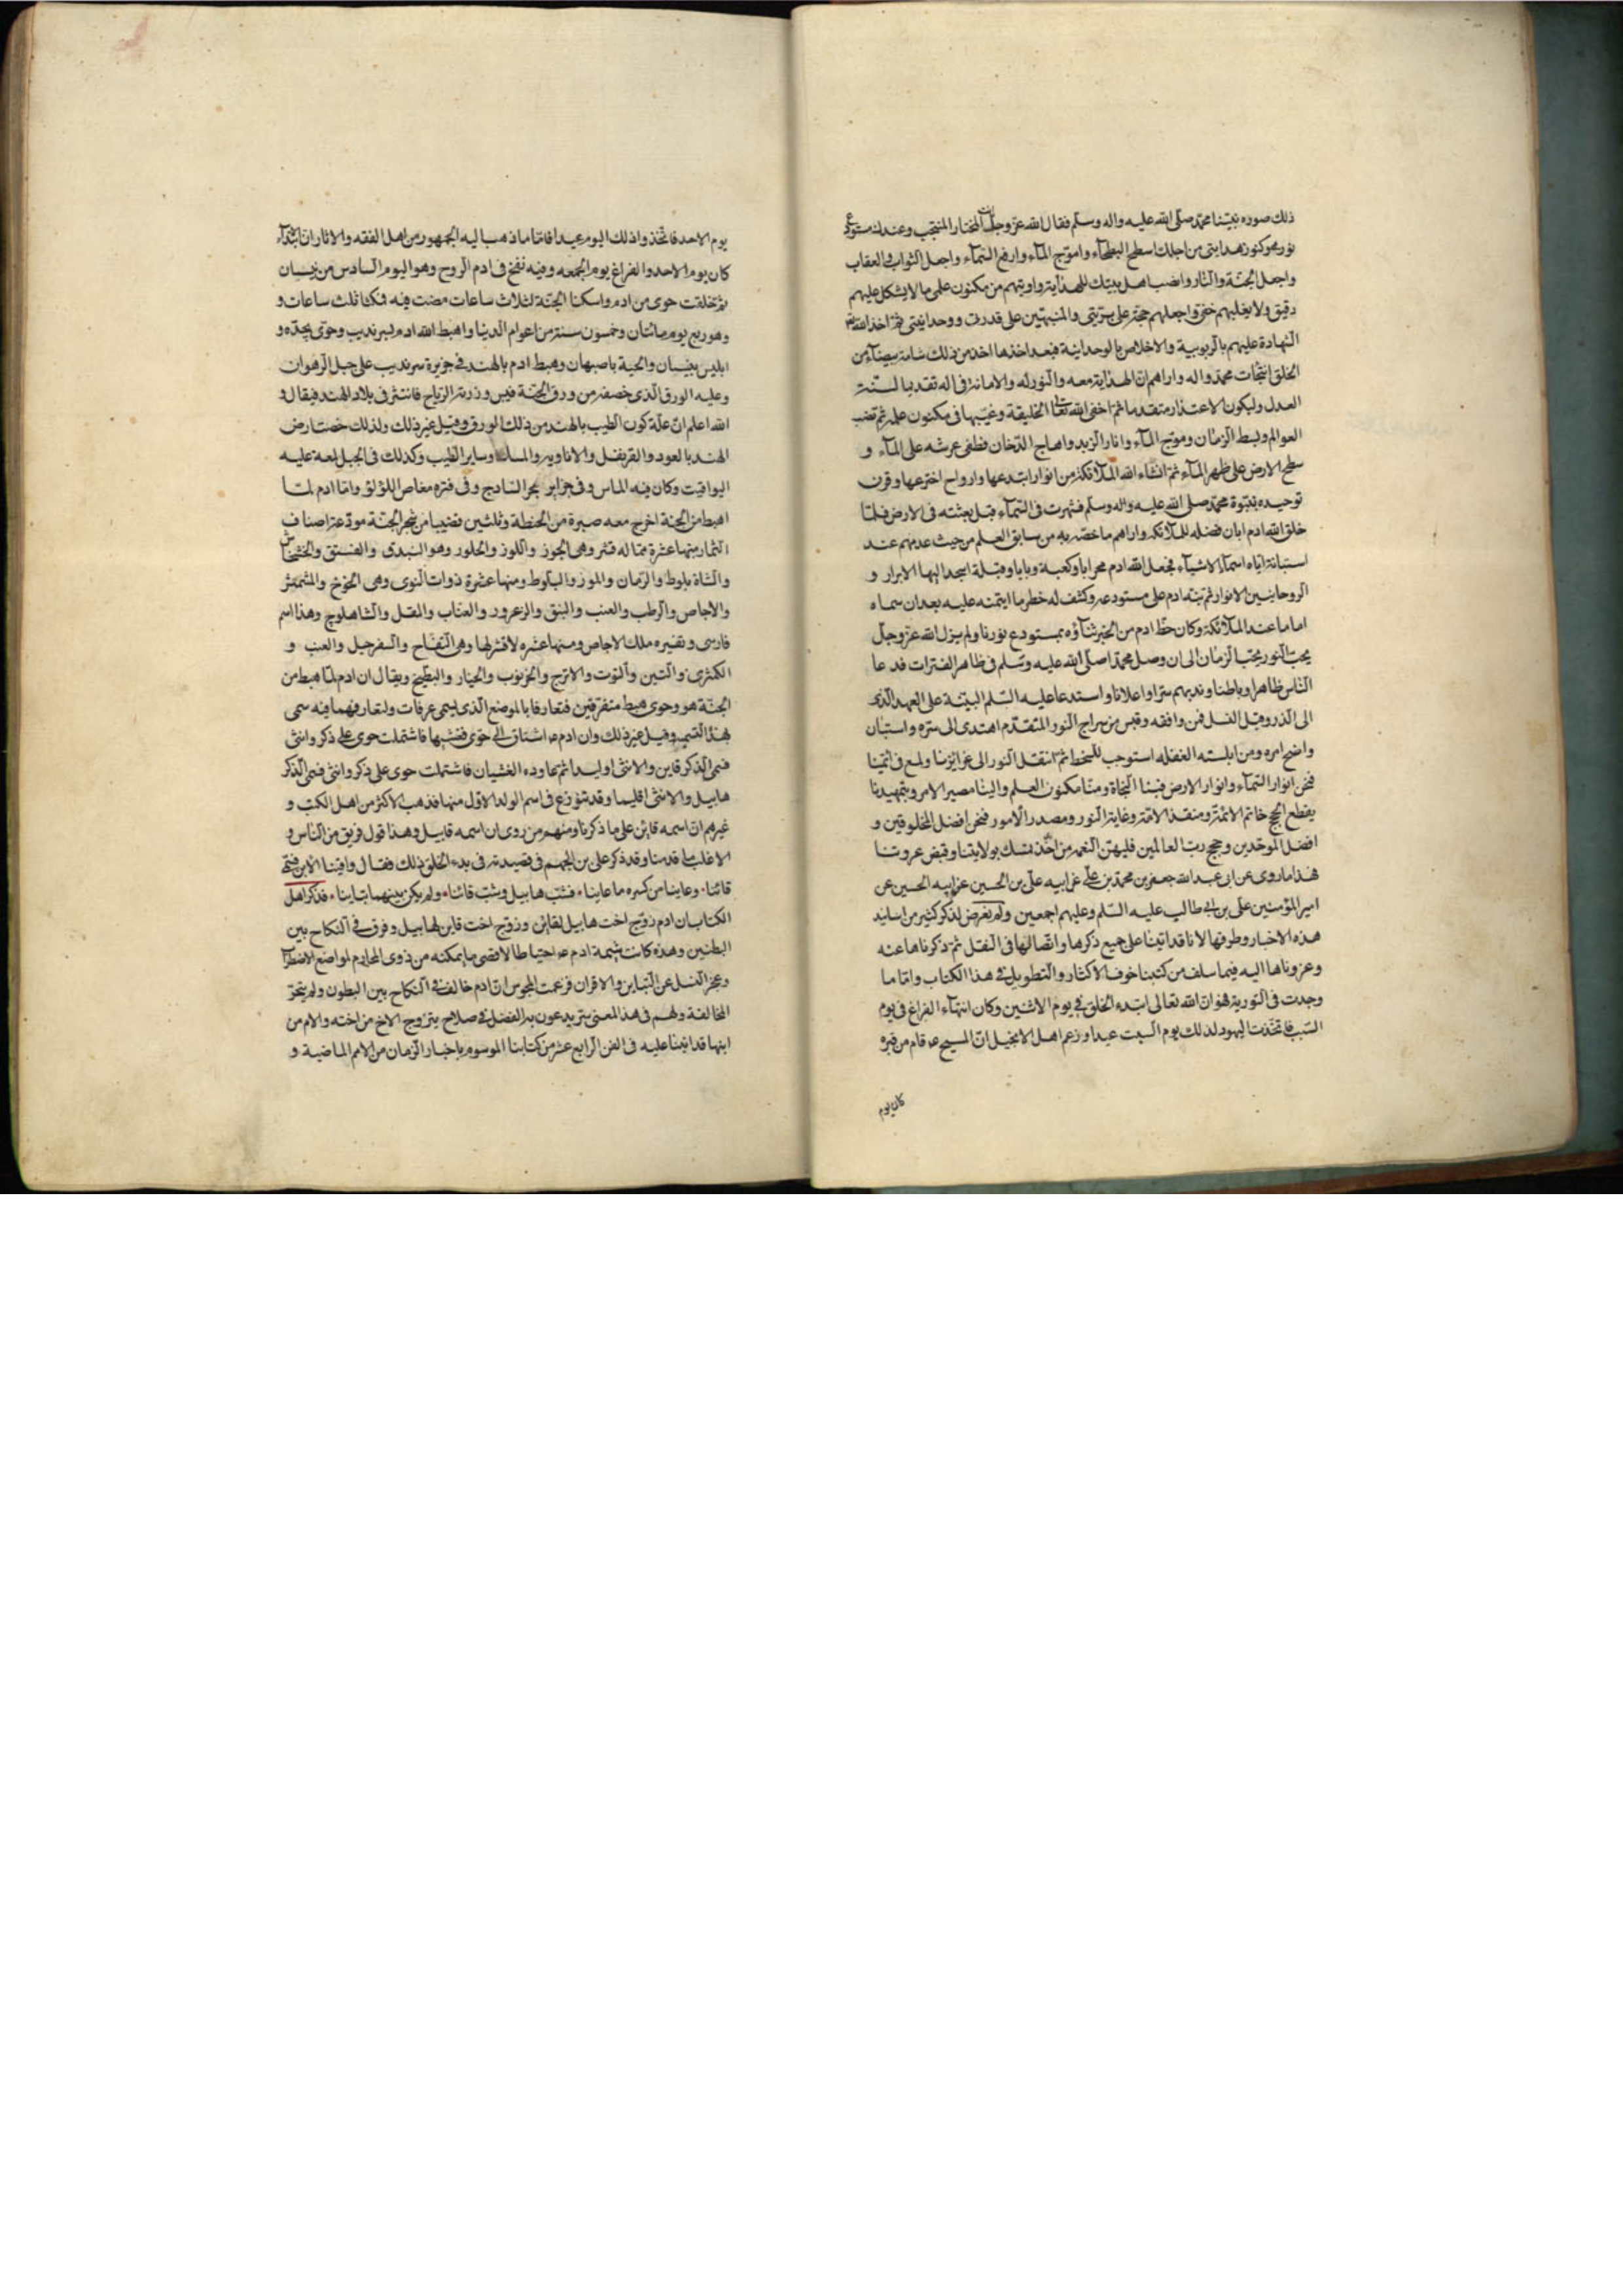 ذلك صوره نبيّنا محمّد صلّى الله عليه واله وسلّم فقال الله عزّ وجلّ انت المختار المنتخب وعندك مستودع
نورى وكنوز هدايتى من اجلك اسطح البطحآء واموّج المآء وارفع السّمآء واجعل الثواب والعقاب
واجعل الجنّة والنّار وانصب اهل بيتك للهداية واوتيهم من مكنون علمى ما لا يشكل عليهم
دقيق ولا يغيبهم خفىّ واجعلهم حجّة على بريّتى والمنبّهين على قدرتى ووحدانيتى ثمّ اخذ الله
الشّهادة عليهم بالربوبية والاخلاص بالوحدانية فبعد اخذها اخذ من ذلك
الخلق انتخاب محمّد واله واراهم انّ الهداية معه والنّور له والامانة فى اله تقديما لسنّة
العدل وليكون الاعتذار متقدما ثمّ اخفى الله تعالى الخليقة وغيّبها فى مكنون علمه ثمّ نصب
العوالم وبسط الزّمان وموّج المآء واثار الزّبد واهاج الدّخان فطفى عرشه على المآء و
سطح الارض على ظهر المآء ثمّ انشاء الله الملآئكة من انوار ابتدعها وارواح اخترعها وقرن
توحيده بنبوّة محمّد صلى الله عليه واله وسلّم فشهرت فى السّمآء قبل بعثته فى الارض فلمّا
خلق الله ادم ابان فضله للملآئكة واراهم ما خصّه به من سابق العلم من حيث عند
استبانة ايّاه اسمآء الاشيآء فجعل الله ادم محرابا وكعبة وبابا وقبلة اسجد اليها الابرار و
الروحانيّين الانوار ثمّ نبّه ادم على مستودعه وكشف له خطر ما ايتمنه عليه بعد ان سماه
اماما عند الملآئكة وكان حظّ ادم من الخير بمستودع نورنا ولم يزل الله عزّ وجلّ
يخبّ النّور تحت الزّمان الى ان وصل محمّدا صلّى الله عليه وسلّم فى ظاهر الفترات فدعا
النّاس ظاهرا وباطنا وندبهم سرّا واعلانا واستدعا عليه السّلم على العهد الّذى
الى الذّر وقبل النسل فمن وافقه وقبس من سراج النّور المتقدّم اهتدى الى سرّه واستبان
واضح امره ومن ابلسته الغفله استوجب السخط ثمّ انتقل النّور الى غرائزنا ولمع فى ائمّتنا
فنحن انوار السّمآء وانوار الارض فبنا النّجاة ومنّا مكنون العلم والينا مصير الامر وبتمهيدنا
يقطع الحجج خاتم الائمّة ومنقذ الامّة وغاية النّور ومصدر الأمور فنحن افضل المخلوقين و
افضل الموحّدين وحجج ربّ العالمين فليهن النّعمه من تمسّك بولايتنا وقبض عروتنا
هذا ما روى عن ابى عبد الله جعفر بن محمّد بن علىّ عن ابيه علىّ بن الحسين عن ابيه الحسين عن
امير المؤمنين علىّ بن ابى طالب عليه السّلم وعليهم اجمعين ولم نعرض لذكر كثير من اسانيد
هذه الاخبار وطرقها لانا قد اتينا على جميع ذكرها واتّصالها فى النقل ثمّ ذكرناها عنه
وعزوناها اليه فيما سلف من كتبنا خوفا الاكثار والتّطويل فى هذا الكتاب وامّا ما
وجدت فى التورية فهو انّ الله تعالى ابتدء الخلق فى يوم الاثنين وكان انتهآء الفراغ فى يوم
السّبت فاتّخذت اليهود لذلك يوم السبت عيدا وزعم اهل الانجيل انّ المسيح عـ قام من قبره
كان يوم
يوم الاحد فاتّخذوا ذلك اليوم عيدا فامّا ما ذهب اليه الجمهور من اهل الفقه والاثار انّ ابتدآء
كان يوم الاحد والفراغ يوم الجمعه وفيه نفخ فى ادم الروح وهو اليوم السّادس من نيسان
ثمّ خلقت حوى من ادم واسكنا الجنّة لثلاث ساعات مضت فيه فمكثا ثلث ساعات و
وهو ربع يوم مائتان وخمسون سنة من اعوام الدنيا واهبط الله ادم بسرنديب وحوّى بجدّه و
ابليس ببيسان والحية باصبهان وهبط ادم بالهند فى جزيرة سرنديب على جبل الرّهوان
وعليه الورق الّذى خصفه من ورق الجنّة فيبس وذرته الرّياح فانتثر فى بلاد الهند فيقال و
الله اعلم انّ علّة كون الطيب بالهند من ذلك الورق وقيل غير ذلك ولذلك خصّت ارض
الهند بالعود والقرنفل والافاويه والمسك وساير الطيب وكذلك فى الجبل لمعة عليه
اليواقيت وكان فيه الماس وفى جزاير بحر السّنادج وفى قعره مغاص اللؤلؤ وامّا ادم لمّا
اهبط من الجنة اخرج معه صبرة من الحنطة وثلثين قضيبا من شجر الجنّة مودعة اصناف
الثّمار منها عشرة ممّا له قشر وهى الجوز واللّوز والجلّوز وهو البندق والفستق والخشخاش
والشّاة بلوط والرّمان والموز والبلّوط ومنها عشرة ذوات النّوى وهى الخوخ والمشمش
والاجاص والرّطب والعنب والنبق والزعرور والعنّاب والمقل والشّاهلوج وهذا اسم
فارسى وتفسيره ملك الاجاص ومنها عشره لا قشر لها وهى التّفّاح والسّفرجل والعنب و
الكمّثرى والتّين والتّوت والاترج والخرنوب والخيار والبطّيخ ويقال ان ادم لمّا هبط من
الجنّة هو وحوى هبط متفرّقين فتعارفا بالموضع الّذى يسمى عرفات ولتعارفهما فيه سمى
بهذا التسمية وقيل غير ذلك وان ادم عـ اشتاق الى حوّى فغشيها فاشتملت حوى على ذكر وانثى
فسمى الذّكر قاين والانثى لوليدا ثمّ عاوده الغشيان فاشتملت حوى على ذكر وانثى فسمى الذّكر
هابيل والانثى اقليما وقد تنوزع فى اسم الولد الاوّل منها فذهب الاكثر من اهل الكتب و
غيرهم انّ اسمه قائن على ما ذكرنا ومنهم من روى ان اسمه قابيل وهذا قول فريق من النّاس و
الاغلب ما قدمنا وقد ذكر على بن الجهم فى قصيدته فى بدء الخلق ذلك فقال واقتنا الابن فسمى
قائنا٠ وعاينا من كبره ما عاينا٠ فشبّ هابيل وشبّ قائنا٠ ولم يكن بينهما تباينا٠ فذكر اهل
الكتاب ان ادم زوّج اخت هابيل لقائن وزوّج اخت قاين لهابيل وفرق فى النّكاح بين
البطنين وهذه كانت شيمة ادم عـ احتياطا لاقصى ما يمكنه من ذوى المحارم لمواضع الاضطرار
وعجز النسل عن التّباين والاقران فزعمت المجوس انّ ادم خالف فى النّكاح بين البطون ولم يتحرّ
المخالفة ولهم فى هذا المعنى سرّ يدعون به الفضل فى صلاح بتزوّج الاخ من اخته والام من
ابنها قد اتينا عليه فى الفن الرابع عشر من كتابنا الموسوم باخبار الزمان من الامم الماضية و